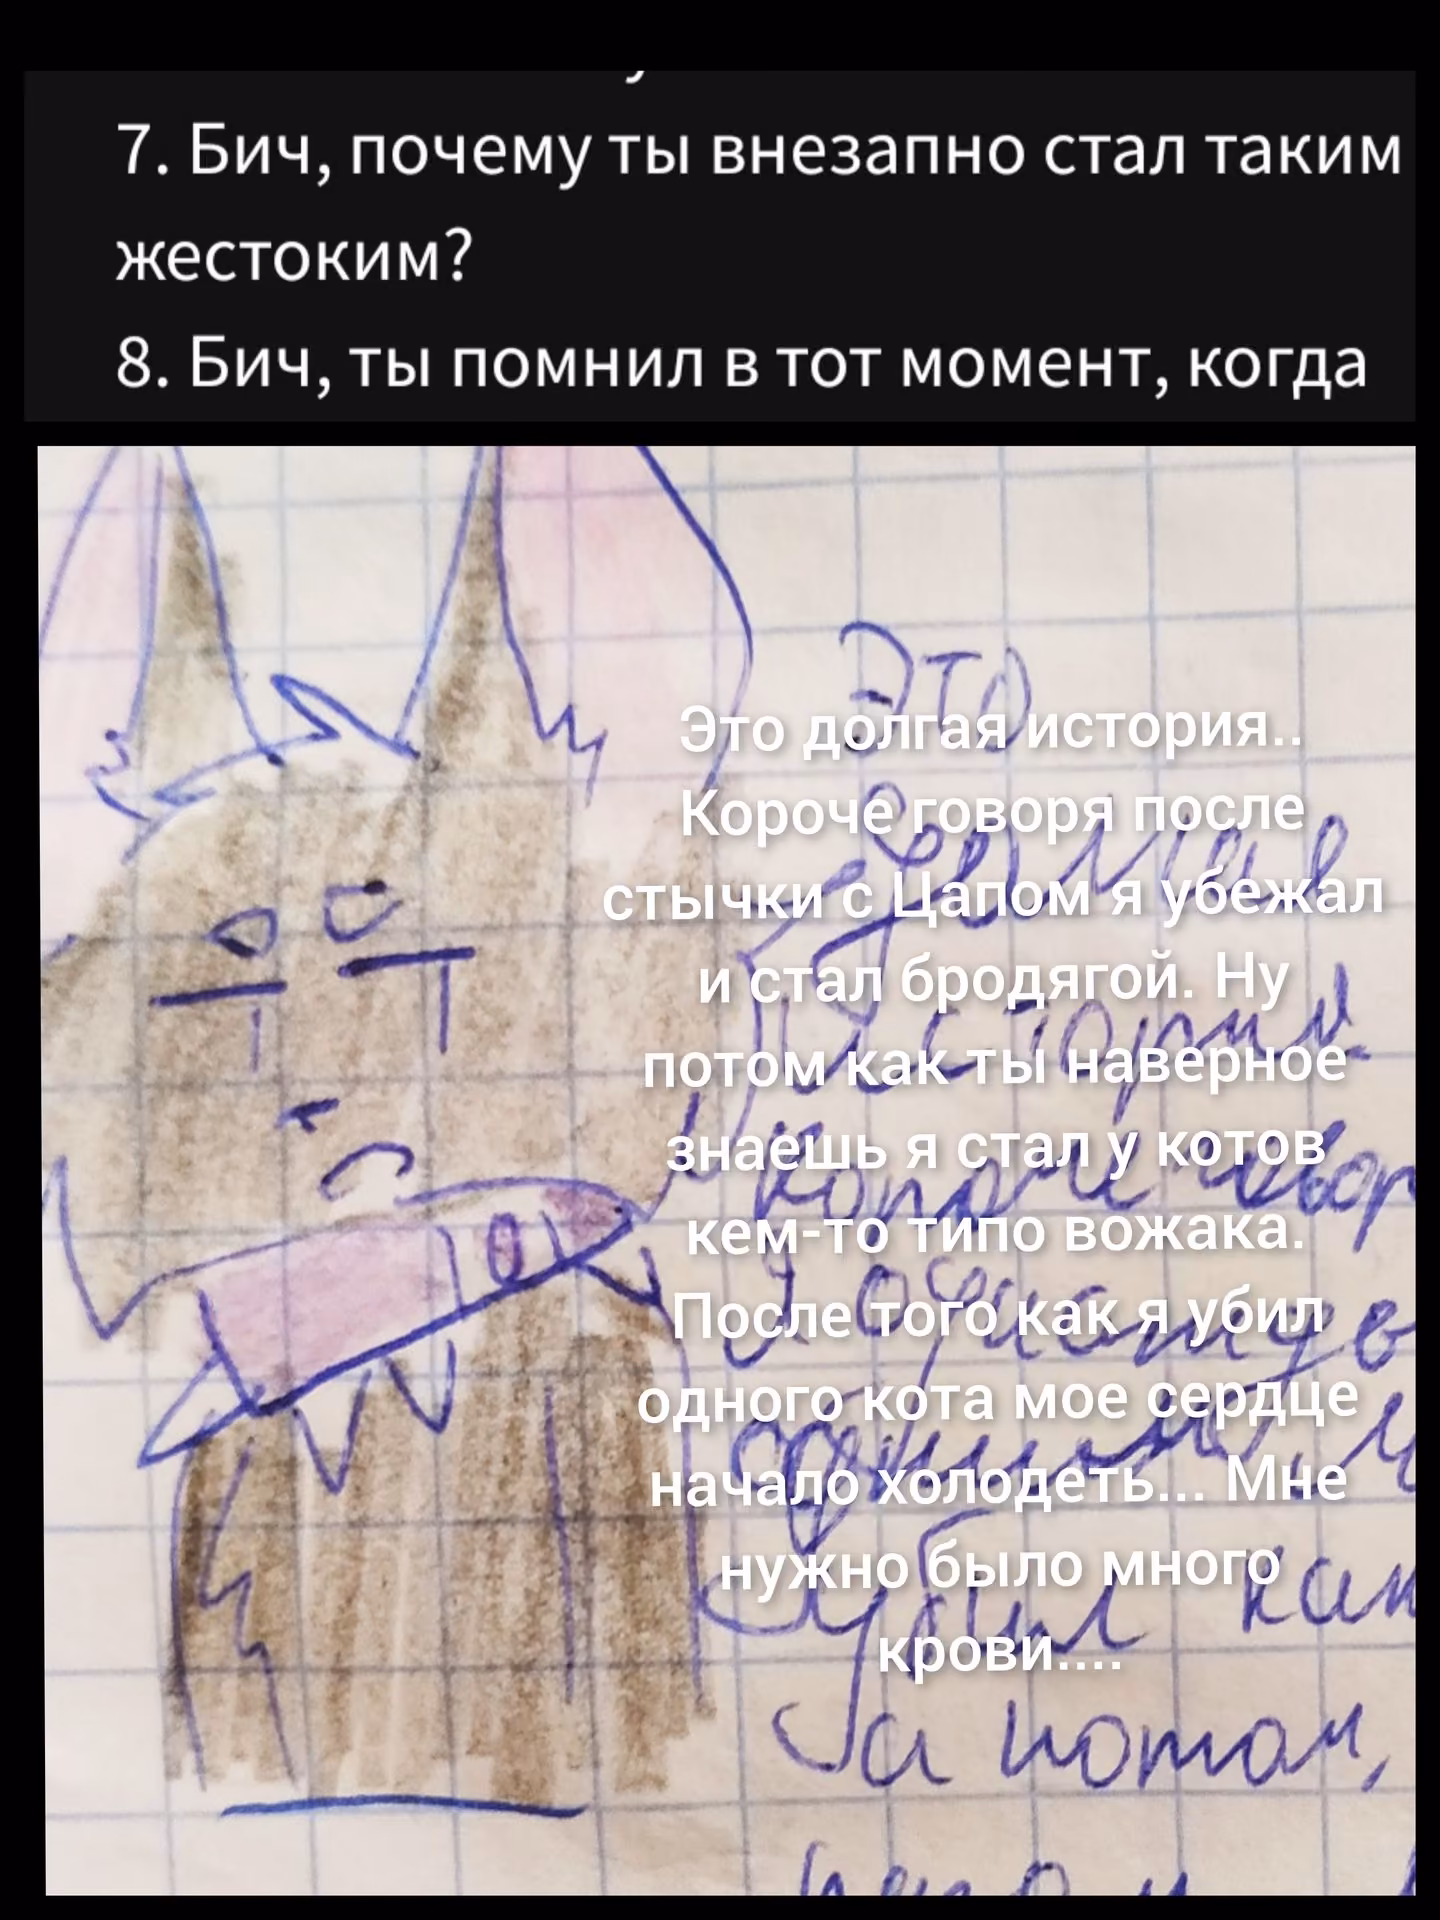 7. Бич, почему ты внезапно стал таким
жестоким?
8. Бич, ты помнил в тот момент, когда
Это
Это долгая история..
Короче говоря после
стычки с Цапом я убежал
и стал бродягой. Ну
потом как ты наверное
знаешь я стал у котов
кем-то типо вожака.
После того как я убил
одного кота мое сердце
начало холодеть... Мне
нужно было много
крови....
История
короче говор
я однажды
убил как
а потом,